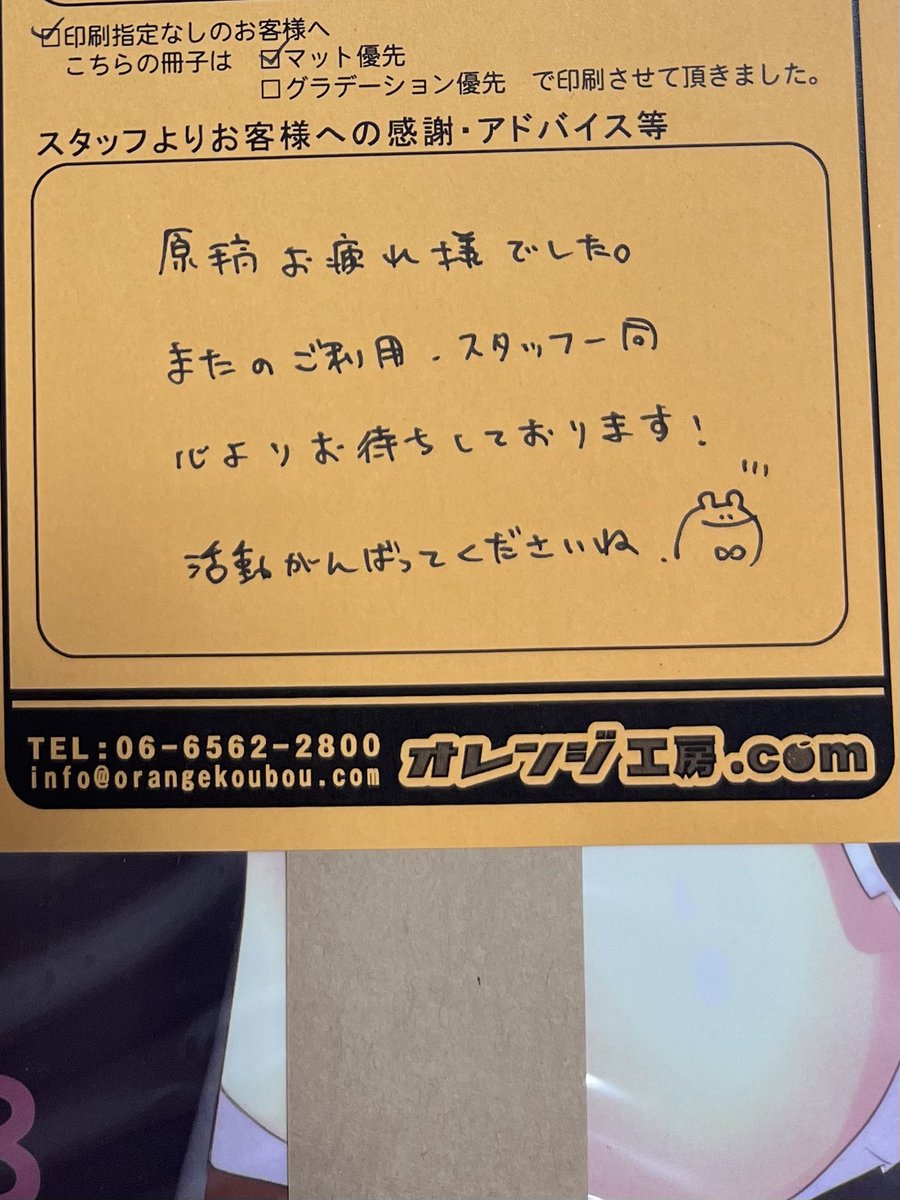 ☑印刷指定なしのお客様へ
こちらの冊子は ☑マット優先
□グラデーション優先 で印刷させて頂きました。
スタッフよりお客様への感謝・アドバイス等
原稿お疲れ様でした。
またのご利用、スタッフ一同
心よりお待ちしております!
活動がんばってくださいね.
TEL:06-6562-2800
info@orangekoubou.com
オレンジ工房.com